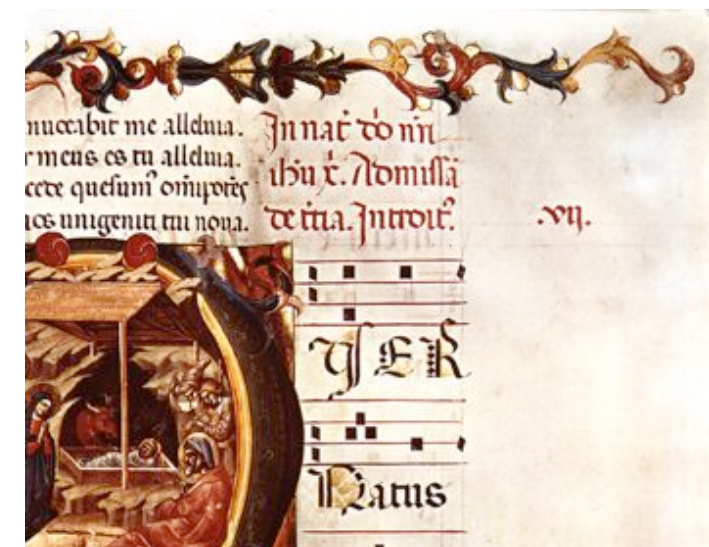 nuccabit me alleluia.
meus es tu alleluia.
cede quesum' omipotes
unigeniti tui noua.
In nat do nri
ihu x. Ad missa
de tcia. Introit.
.vii.
VER
Natus